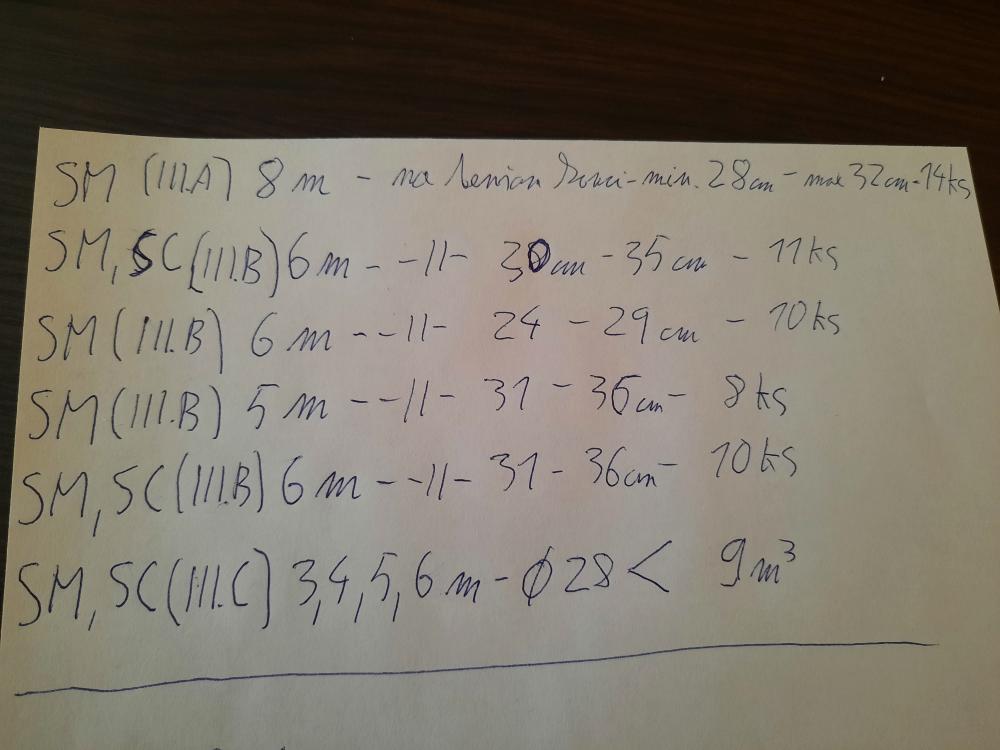 SM (III.A) 8 m - na tenšom konci - min. 28cm - max 32cm - 14ks
SM, SC (III.B) 6 m - -11- 30cm - 35cm - 11ks
SM (III.B) 6 m - -11- 24 - 29cm - 10ks
SM (III.B) 5 m - -11- 31 - 36cm - 8ks
SM, SC (III.B) 6 m - -11- 31 - 36cm - 10ks
SM, SC (III.C) 3,4,5,6 m - ϕ28 < 9m³